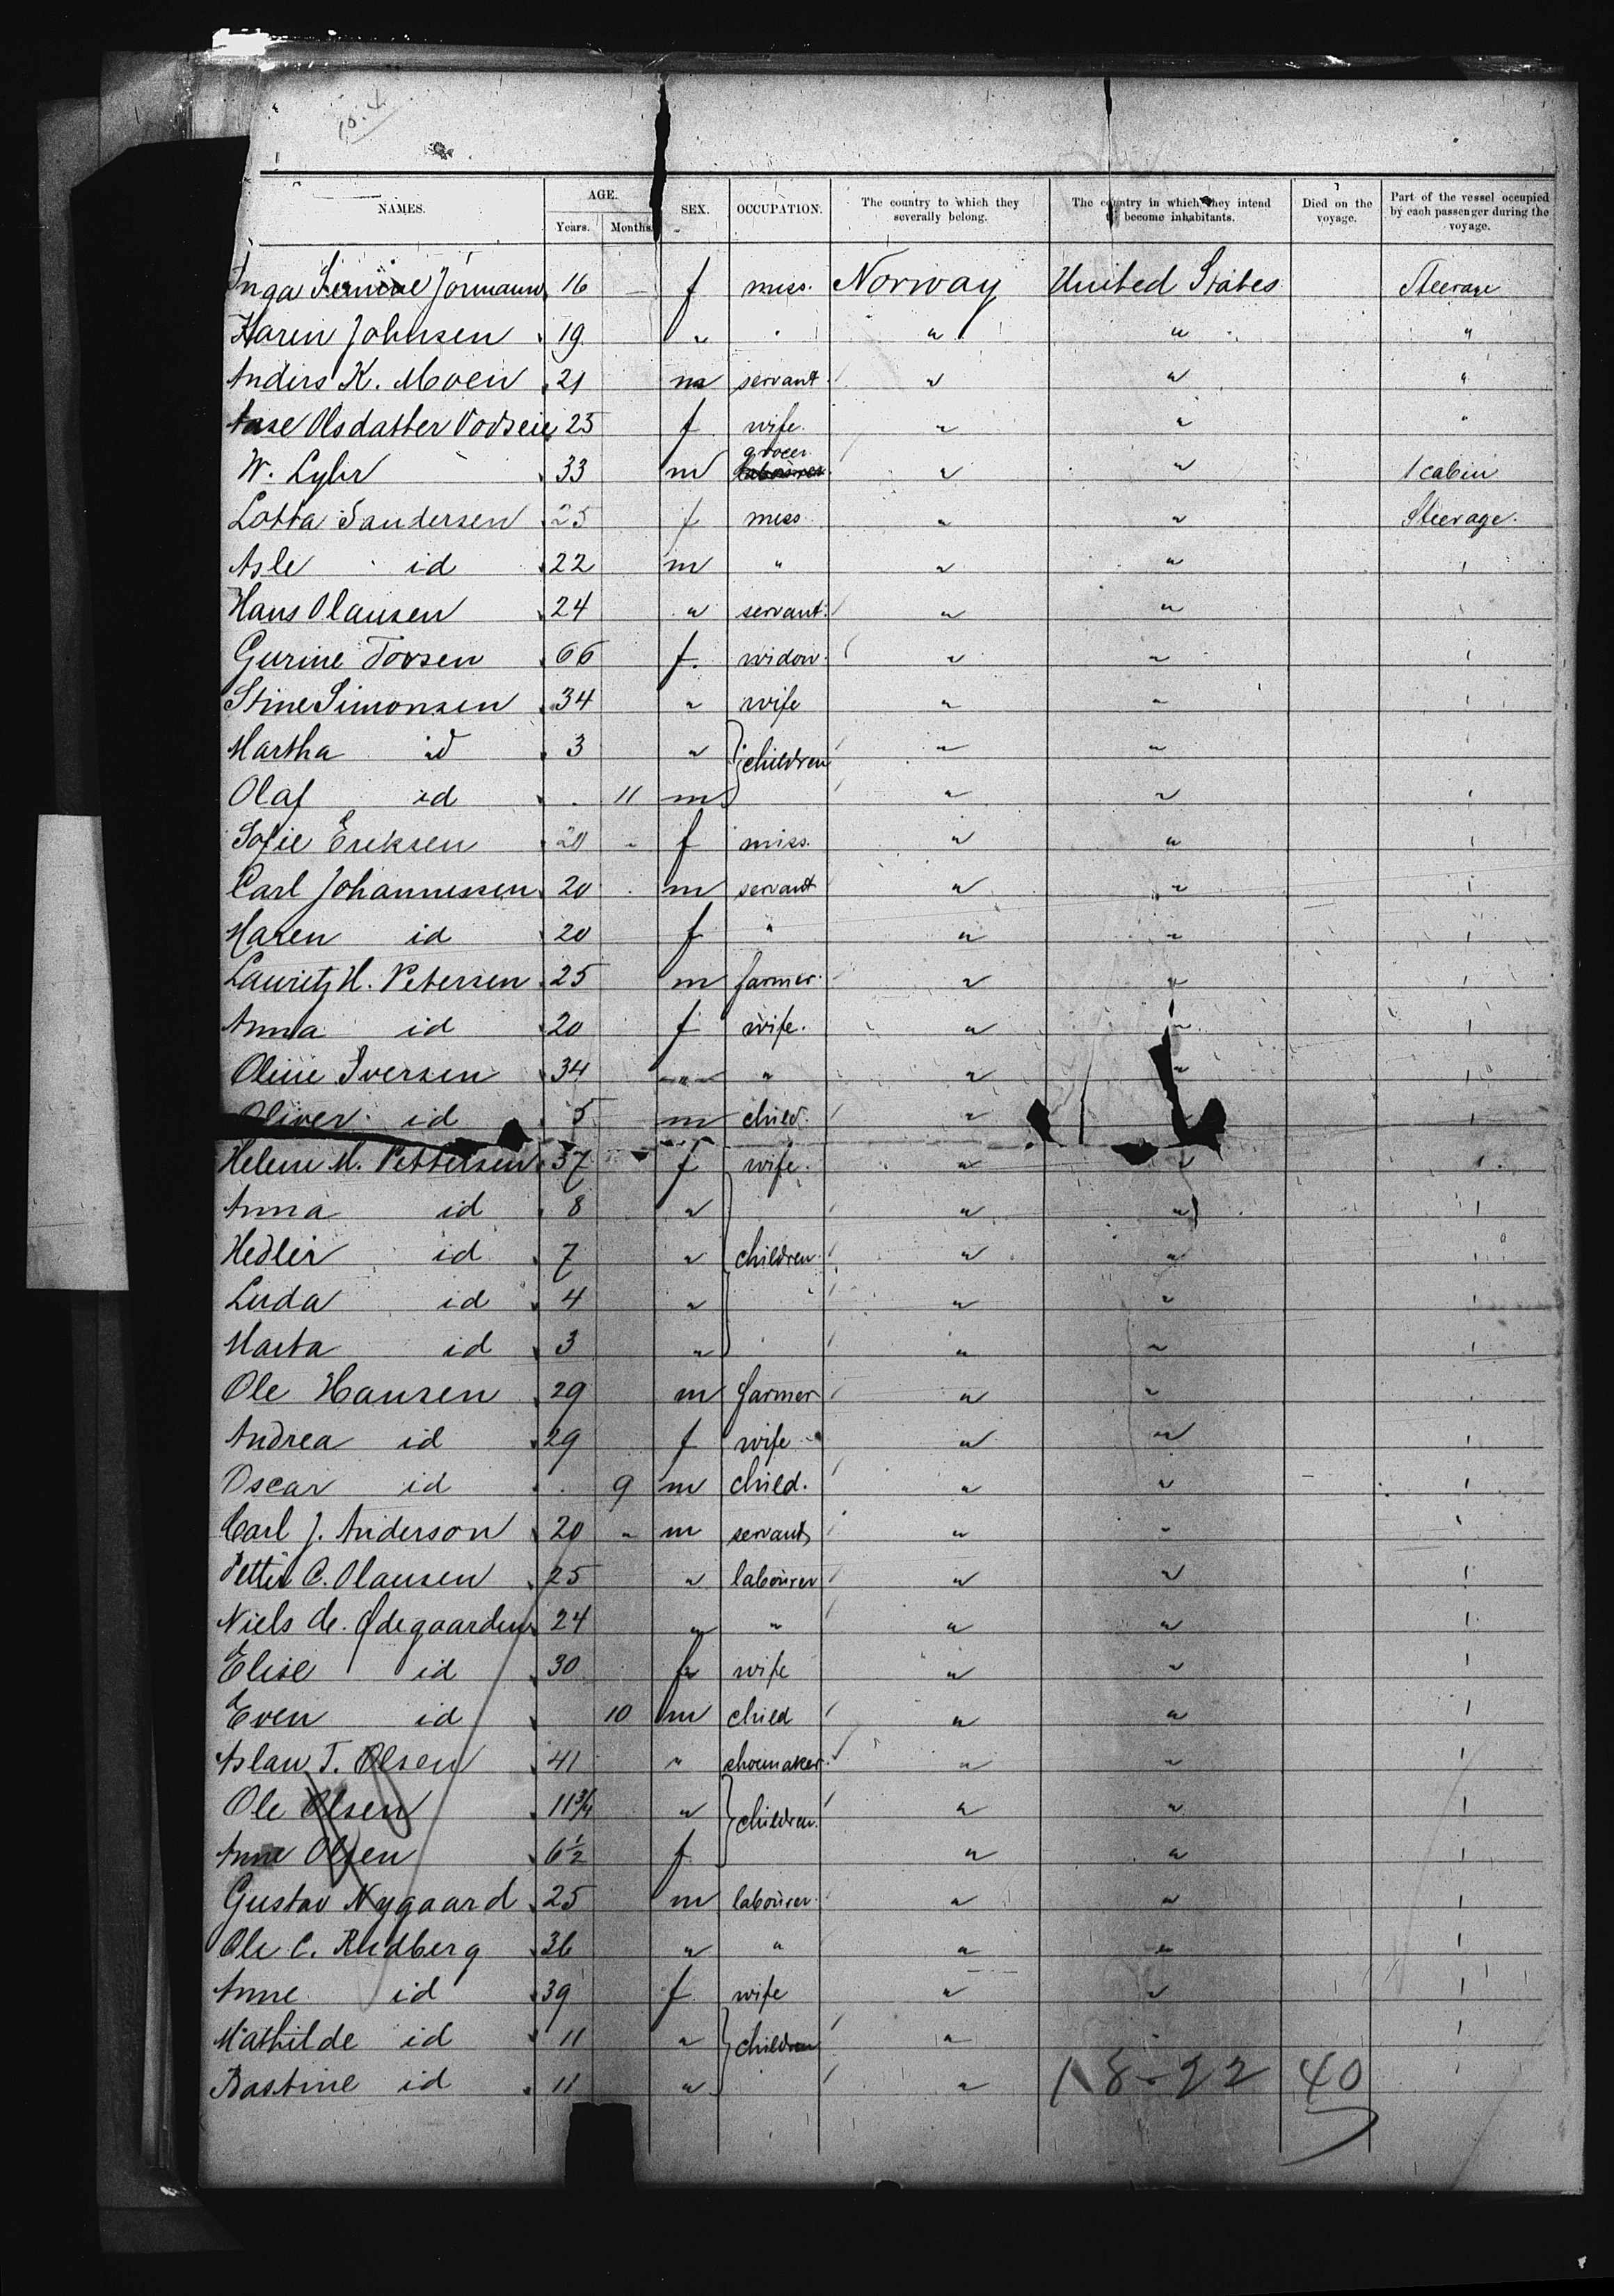 10.4
NAMES. AGE. SEX. OCCUPATION. The country to which they severally belong. The country in which they intend to become inhabitants. Died on the voyage. Part of the vessel occupied by each passenger during the voyage.
Years. Months.
Inga Jormann 16 — f miss. Norway United States Steerage
Karen Johnsen 19 " " " " "
Anders K. Moen 21 m servant " " "
Aase Olsdatter 25 f wife. " " "
grocer
W. Lyhr 33 m labourer " " 1 cabin
Lotta Sandersen 25 f miss " " Steerage.
Asle id 22 m " " " "
Hans Olausen 24 " servant. " " "
Gurine Torsen 66 f. widow. " " "
Stine Simonsen 34 " wife " " "
Martha id 3 " children " " "
Olaf id 11 m " " "
Sofie Eriksen 20 " f miss. " " "
Carl Johannessen 20 m servant " " "
Maren id 20 f " " " "
Lauritz H. Petersen 25 m farmer. " " "
Anna id 20 f wife. " " "
Oline Iversen 34 " " " " "
Oliver id 5 m child. " " "
Helene M. Pettersen 37 f wife. " " "
Anna id 8 " " " "
Hedler id 7 " children. " " "
Luda id 4 " " " "
Marta id 3 " " " "
Ole Hansen 29 m farmer " " "
Andrea id 29 f wife " " "
Oscar id 9 m child. " " "
Carl J. Anderson 20 " m servant " " "
Petter C. Olausen 25 " labourer " " "
Niels Chr. Ødegaarden 24 " " " " "
Elise id 30 f wife " " "
Even id 10 m child " " "
Aslan T. Olsen 41 " shoemaker. " " "
Ole Olsen 11 3/4 " children. " " "
Anne Olsen 6 1/2 f " " "
Gustav Nygaard 25 m labourer. " " "
Ole C. Rudberg 36 " " " " "
Anne id 39 f wife " " "
Mathilde id 11 " children " " "
Bastine id 11 " " 18-22 40